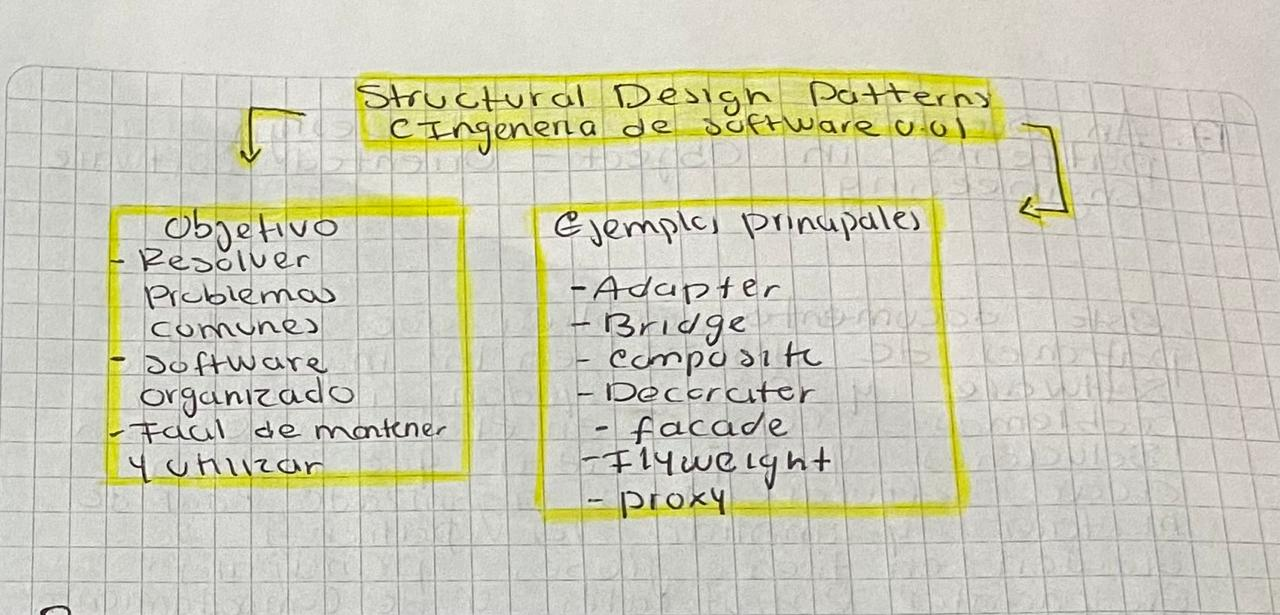 Structural Design Patterns
(Ingeneria de Software v.01
Objetivo
- Resolver
Problemas
comunes
- Software
organizado
- Facil de mantener
y utilizar
Ejemplos principales
- Adapter
- Bridge
- Composite
- Decorater
- facade
- Flyweight
- proxy